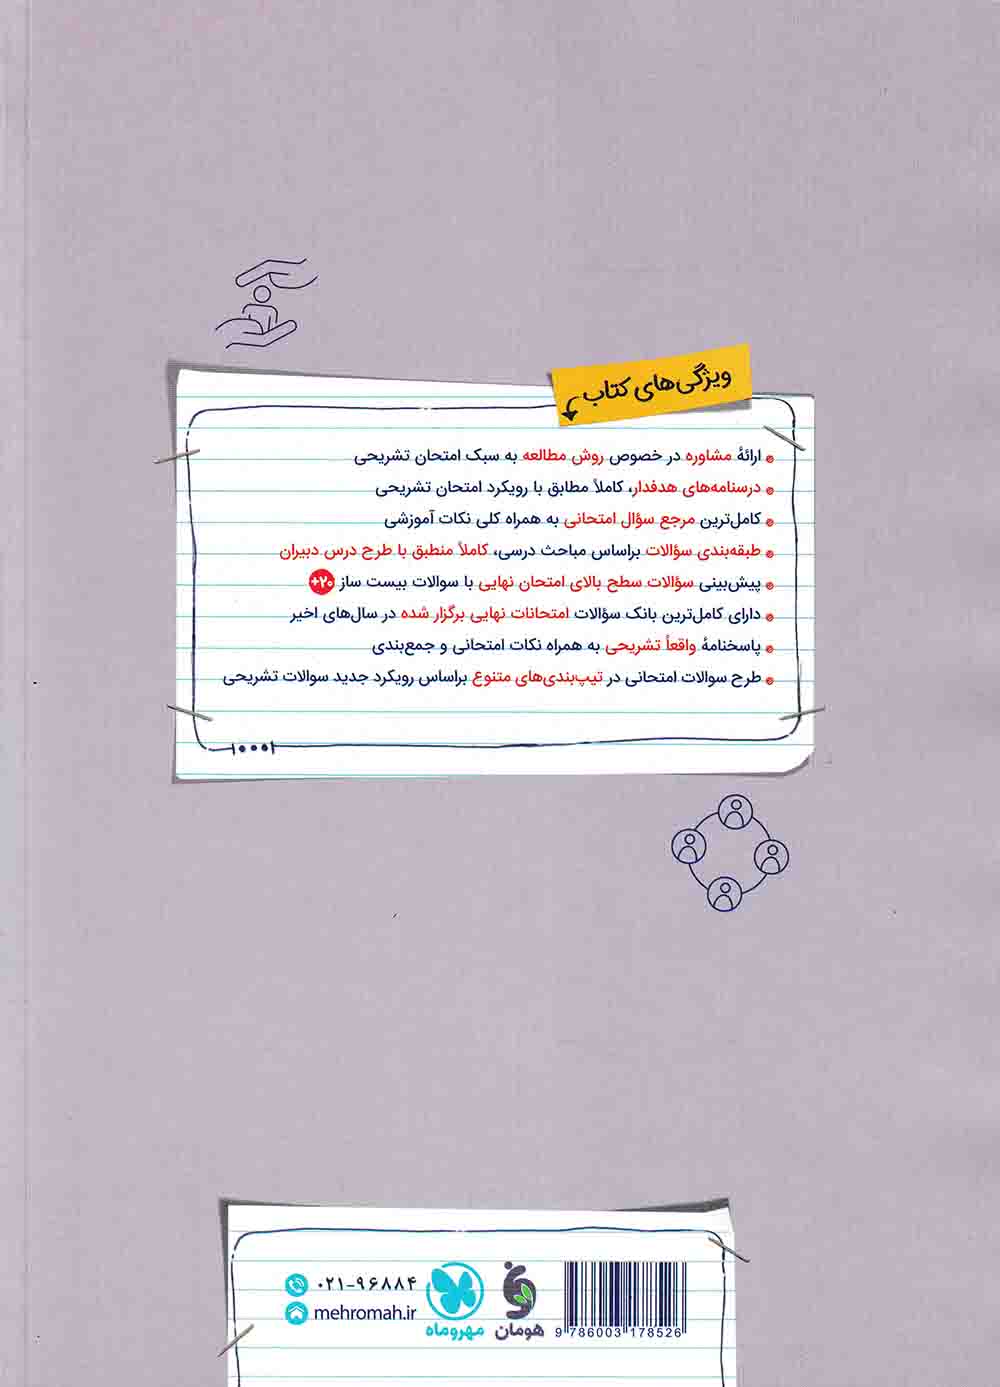 ویژگی‌های کتاب
ارائهٔ مشاوره در خصوص روش مطالعه به سبک امتحان تشریحی
درسنامه‌های هدفدار، کاملاً مطابق با رویکرد امتحان تشریحی
کامل‌ترین مرجع سؤال امتحانی به همراه کلی نکات آموزشی
طبقه‌بندی سؤالات براساس مباحث درسی، کاملاً منطبق با طرح درس دبیران
پیش‌بینی سؤالات سطح بالای امتحان نهایی با سوالات بیست ساز +۲۰
دارای کامل‌ترین بانک سؤالات امتحانات نهایی برگزار شده در سال‌های اخیر
پاسخنامهٔ واقعاً تشریحی به همراه نکات امتحانی و جمع‌بندی
طرح سوالات امتحانی در تیپ‌بندی‌های متنوع براساس رویکرد جدید سوالات تشریحی
۰۲۱-۹۶۸۸۴
mehromah.ir
مهروماه
هومان
9 786003 178526